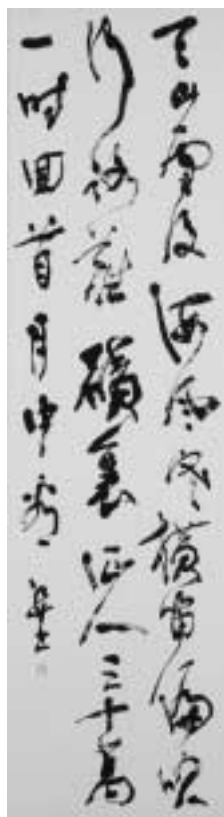 天山雪後海風寒橫笛偏吹
行路難磧裏征人三十萬
一時回首月中看